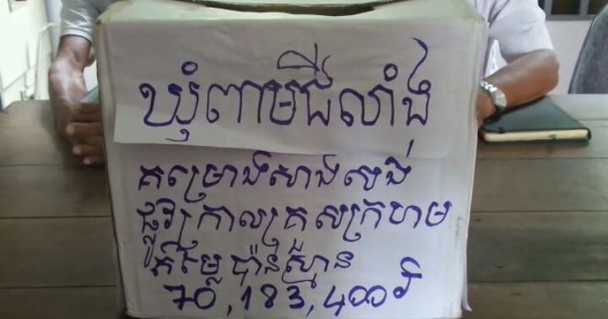 ឃុំពាមជីលាំង
គម្រោងសាងសង់
ផ្លូវក្រាលគ្រួសក្រហម
តម្លៃប៉ាន់ស្មាន
70,183,400រ